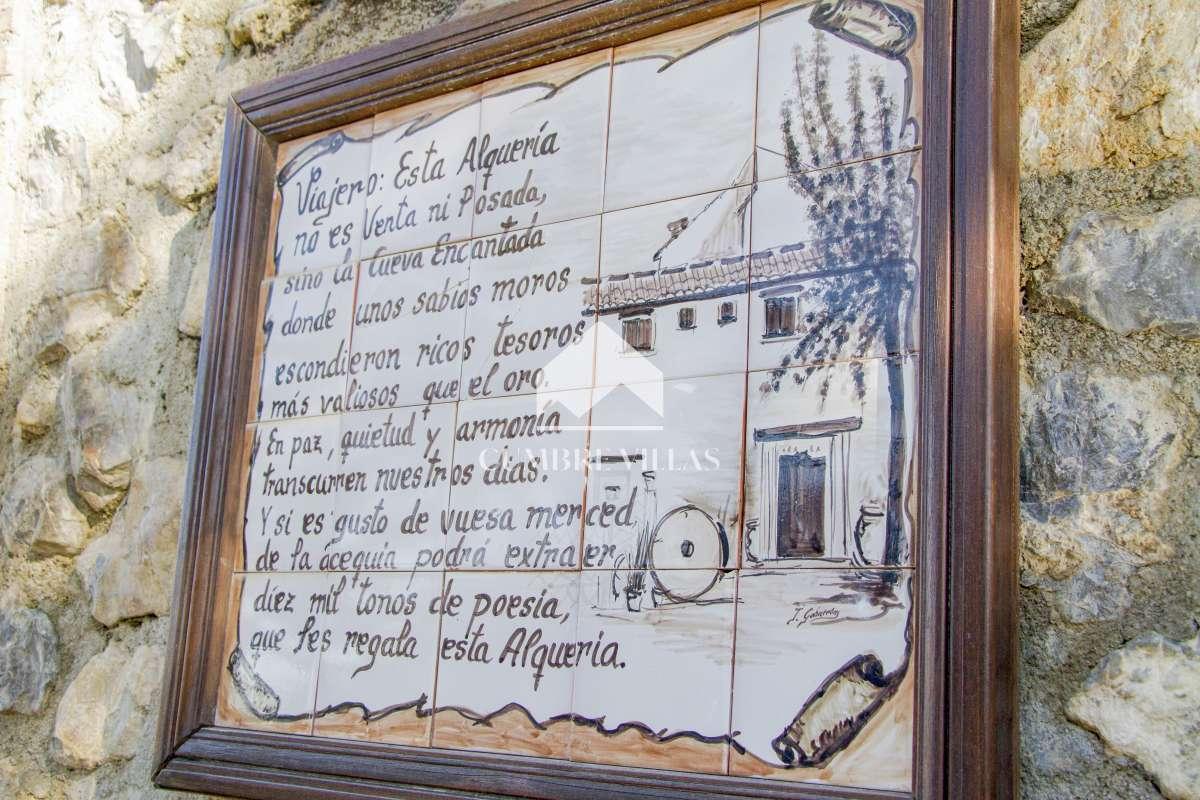 Viajero: Esta Alquería
no es Venta ni Posada,
sino la Cueva Encantada
donde unos sabios moros
escondieron ricos tesoros
más valiosos que el oro.
En paz, quietud y armonía
transcurren nuestros dias.
Y si es gusto de vuesa merced
de la acequia podrá extraer
diez mil tonos de poesia,
que les regala esta Alqueria.
CUMBRE VILLAS